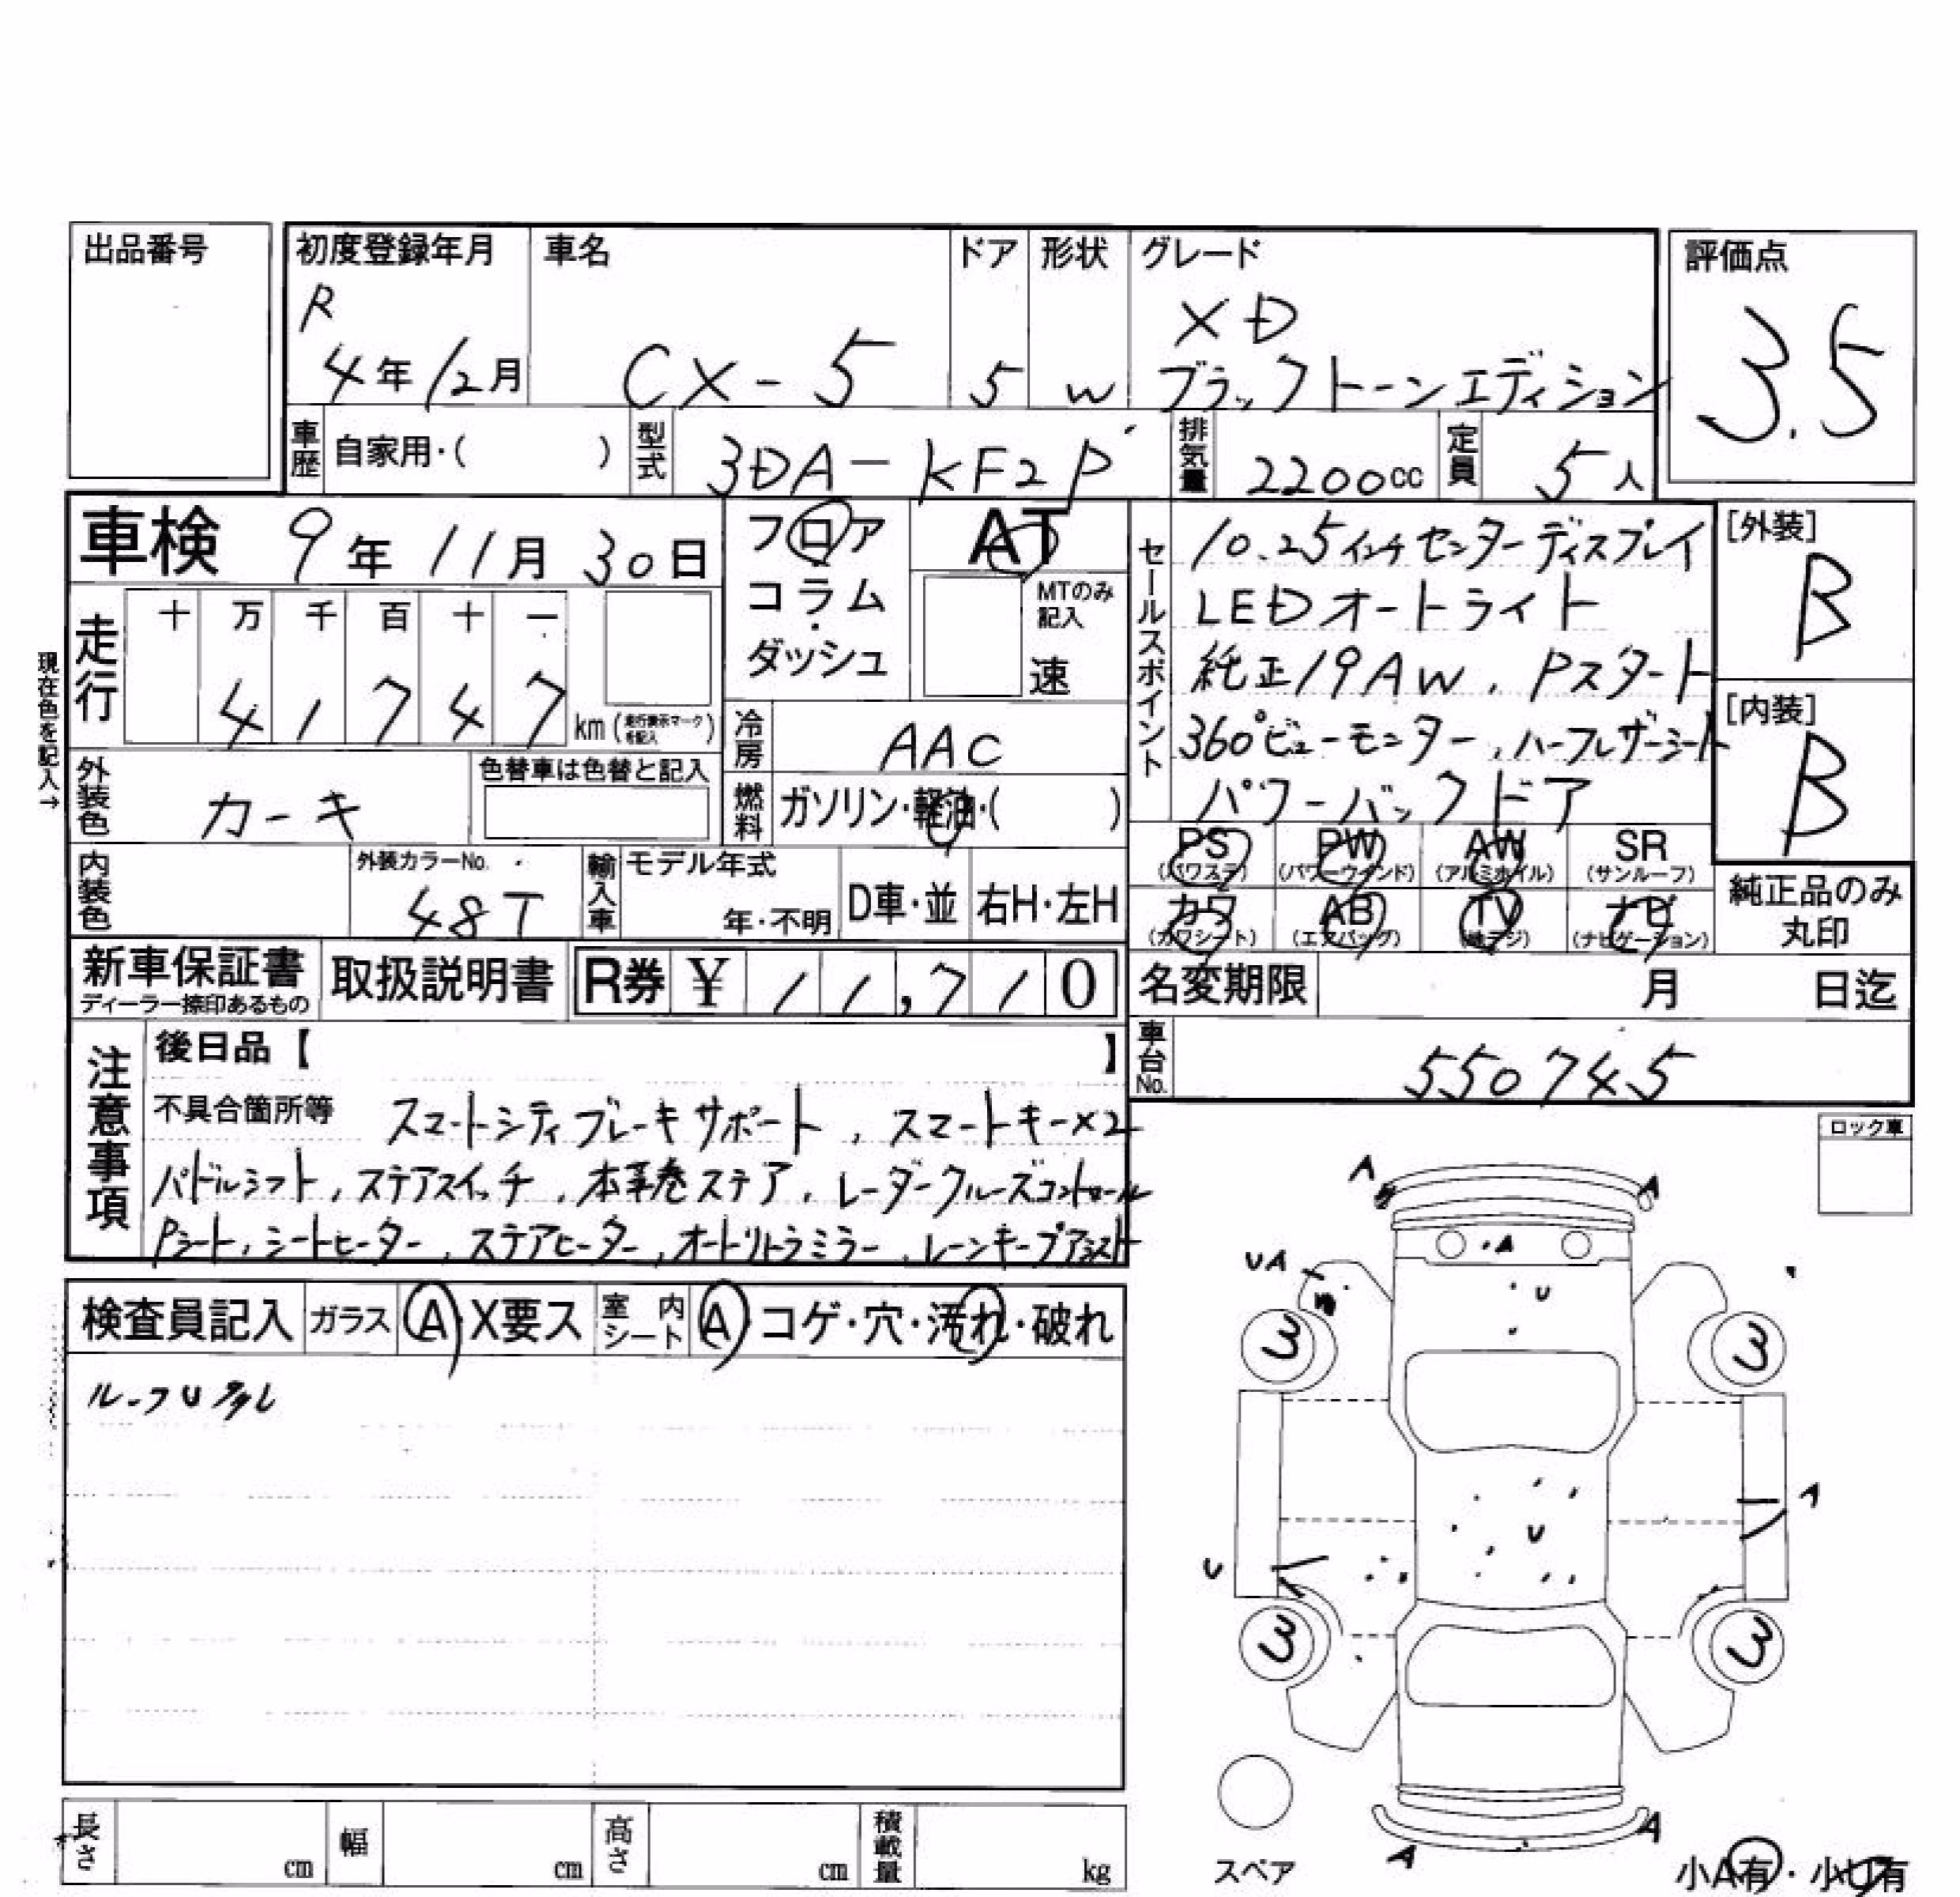 出品番号
初度登録年月 車名 ドア 形状 グレード 評価点
R 4年12月 CX-5 5 W XD
ブラックトーンエディション
3.5
車歴 自家用・( ) 型式 3DA-KF2P 排気量 2200cc 定員 5人
車検 9年11月30日 フロア AT
コラム
ダッシュ
MTのみ記入
速
走行 十 万 千 百 十 一
4 1 7 4 7 km (走行表示マークを記入)
現在色を記入→
冷房 AAC
外装色 カーキ 色替車は色替と記入
燃料 ガソリン・軽油・( )
内装色 外装カラーNo. 48T 輸入車 モデル年式 年・不明 D車・並 右H・左H
セールスポイント
10.25インチセンターディスプレイ
LEDオートライト
純正19AW、Pスタート
360°ビューモニター、ハーフレザーシート
パワーバックドア
[外装]
B
[内装]
B
PS (パワステ) PW (パワーウインド) AW (アルミホイル) SR (サンルーフ)
カワ (カワシート) AB (エアバッグ) TV (地デジ) ナビ (ナビゲーション)
純正品のみ丸印
新車保証書 ディーラー捺印あるもの 取扱説明書 R券 ¥ 11,710
名変期限 月 日迄
車台No. 550745
注意事項
後日品【 】
不具合箇所等 スマートシティブレーキサポート、スマートキー×2
パドルシフト、ステアスイッチ、本革巻ステア、レーダークルーズコントロール
Pシート、シートヒーター、ステアヒーター、オートリトラミラー、レーンキープアシスト
検査員記入 ガラス A・X要ス 室内シート A・コゲ・穴・汚れ・破れ
ルーフU
ロック車
A A
A
UA
U
3 3
A
U
U
3 3
A A
スペア
小A有・小U有
長さ cm 幅 cm 高さ cm 積載量 kg